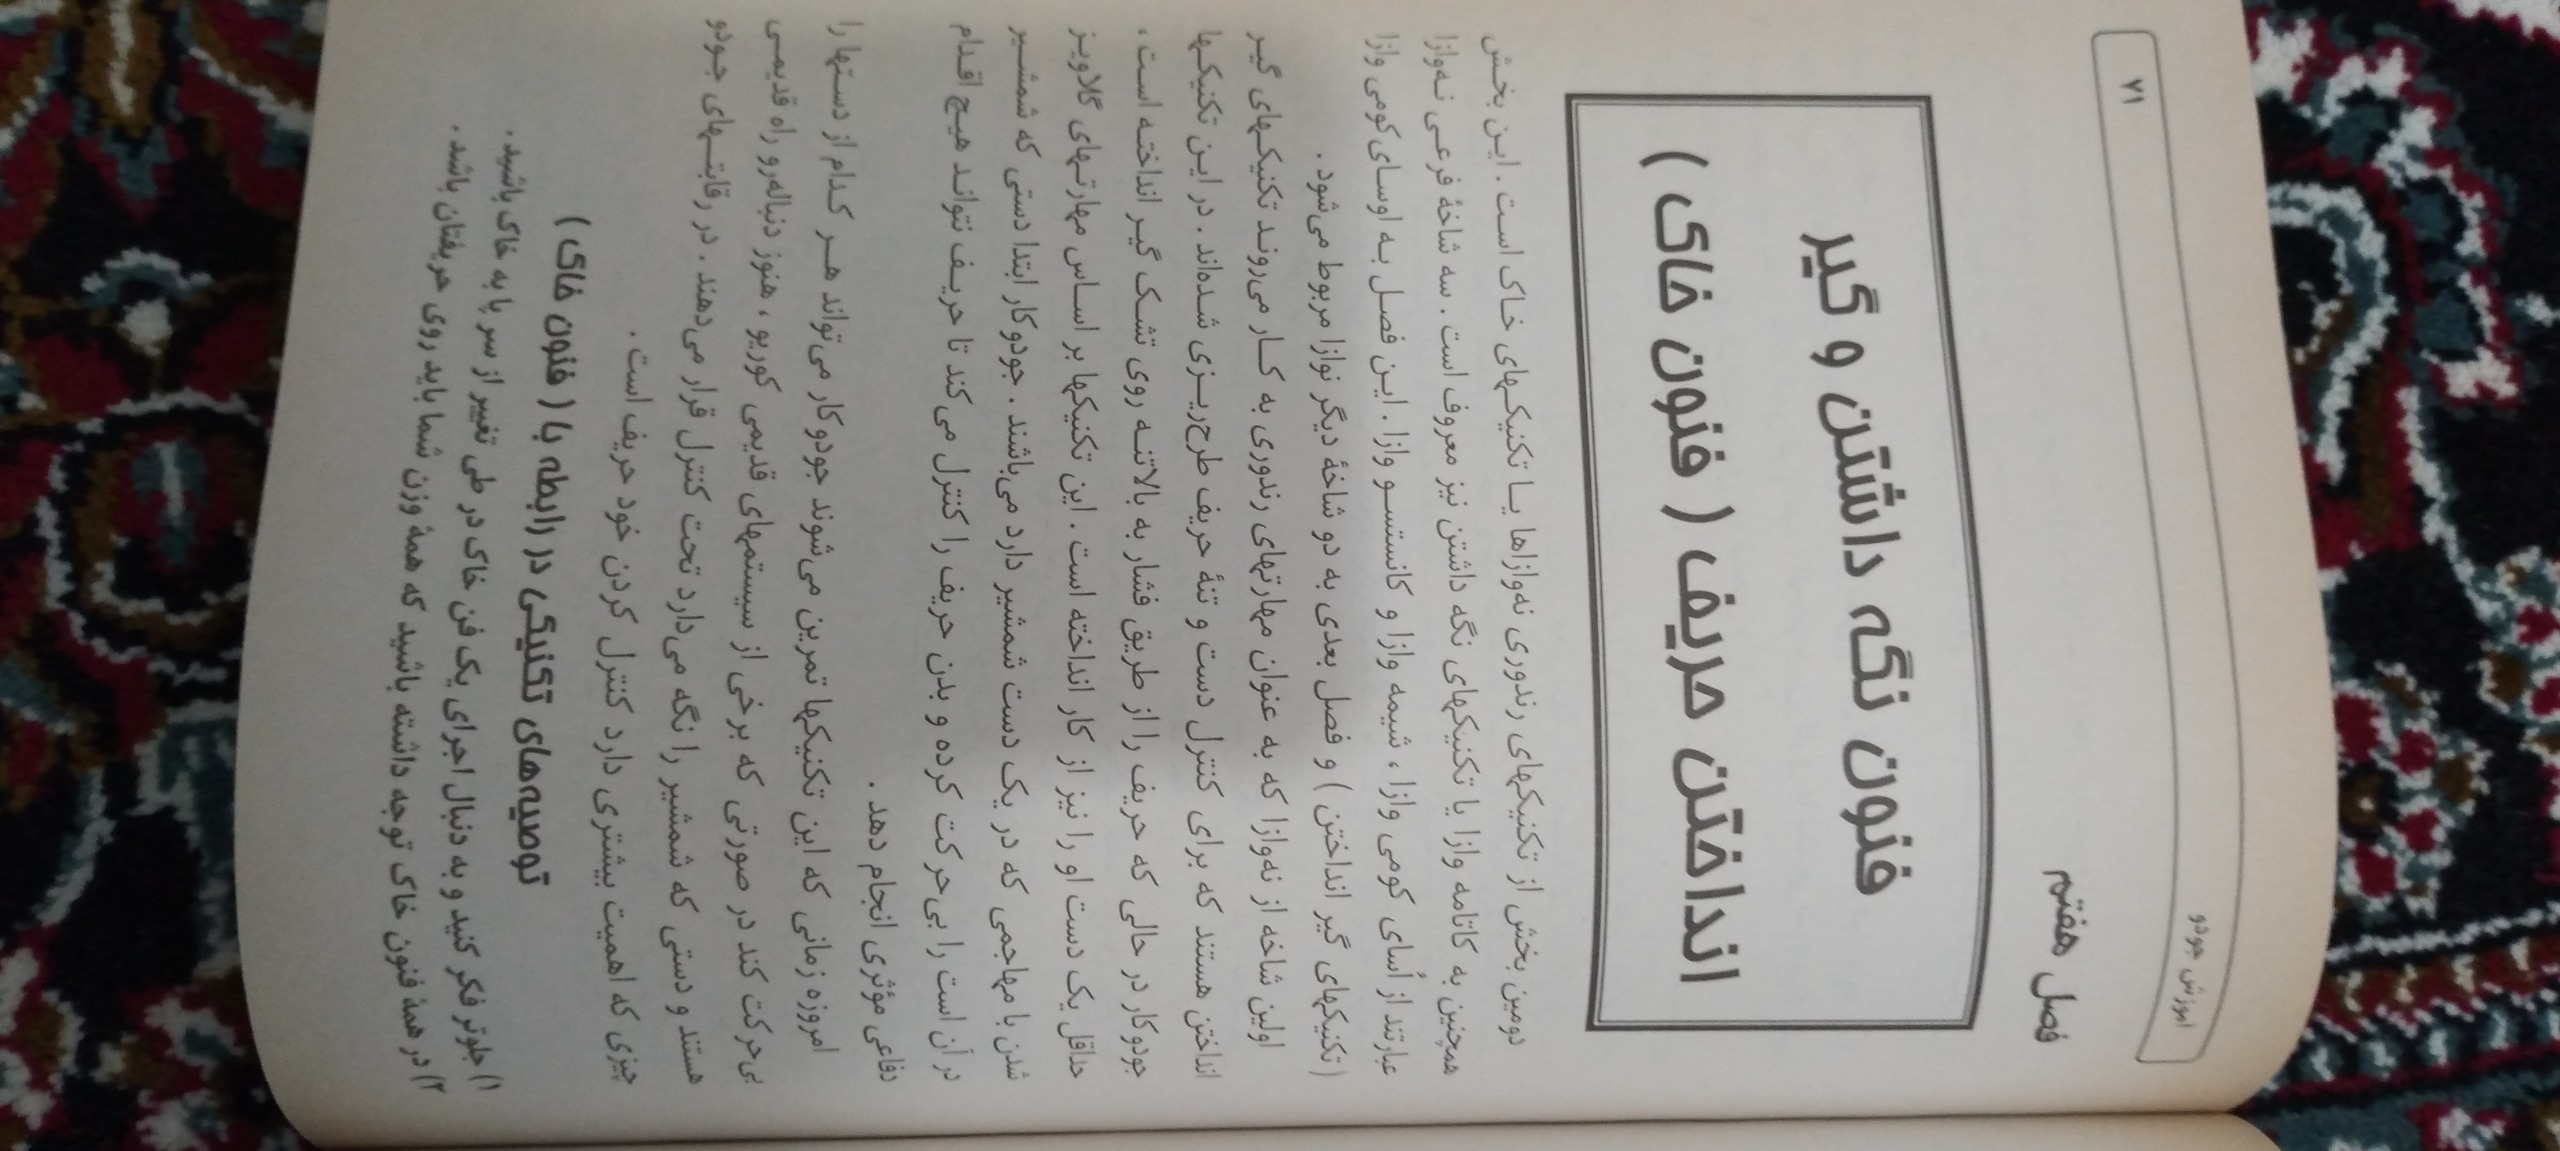 آموزش جودو
۷۱
فصل هفتم
فنون نگه داشتن و گیر
انداختن حریف ( فنون خاک )
دومین بخش از تکنیکهای رندوری نه‌وازاها یـا تکنیـکهای خـاک اسـت . ایـن بخـش
همچنین به کاتامه وازا یا تکنیکهای نگه داشتن نیز معروف است . سه شاخهٔ فرعـی نـه‌وازا
عبارتند از اُسای کومی وازا ، شیمه وازا و کانستسـو وازا . ایـن فصـل بـه اوسـای کومی وازا
( تکنیکهای گیر انداختن ) و فصل بعدی به دو شاخهٔ دیگر نوازا مربوط می‌شود .
اولین شاخه از نه‌وازا که به عنوان مهارتهای رندوری به کـار می‌رونـد تکنیکـهای گیـر
انداختن هستند که برای کنترل دست و تنهٔ حریف طرح‌ریـزی شـده‌اند . در ایـن تکنیکـها
جودوکار در حالی که حریف را از طریق فشار به بالاتنـه روی تشـک گیـر انداختـه اسـت ،
حداقل یک دست او را نیز از کار انداخته است . این تکنیکها بر اسـاس مهارتـهای گلاویـز
شدن با مهاجمی که در یک دست شمشیر دارد می‌باشند . جودوکار ابتدا دستی که شمشـیر
در آن است را بی‌حرکت کرده و بدن حریف را کنترل می‌کند تا حریـف نتوانـد هیـچ اقـدام
دفاعی مؤثری انجام دهد .
امروزه زمانی که این تکنیکها تمرین می‌شوند جودوکار می‌تواند هـر کـدام از دسـتها را
بی‌حرکت کند در صورتی که برخی از سیستمهای قدیمی کوریو ، هنوز دنباله‌رو راه قدیمـی
هستند و دستی که شمشیر را نگه می‌دارد تحت کنترل قرار می‌دهند . در رقابتـهای جـودو
چیزی که اهمیت بیشتری دارد کنترل کردن خود حریف است .
توصیه‌های تکنیکی در رابطه با ( فنون خاک )
۱) جلوتر فکر کنید و به دنبال اجرای یک فن خاک در طی تغییر از سر پا به خاک باشید .
۲) در همهٔ فنون خاک توجه داشته باشید که همهٔ وزن شما باید روی حریفتان باشد .